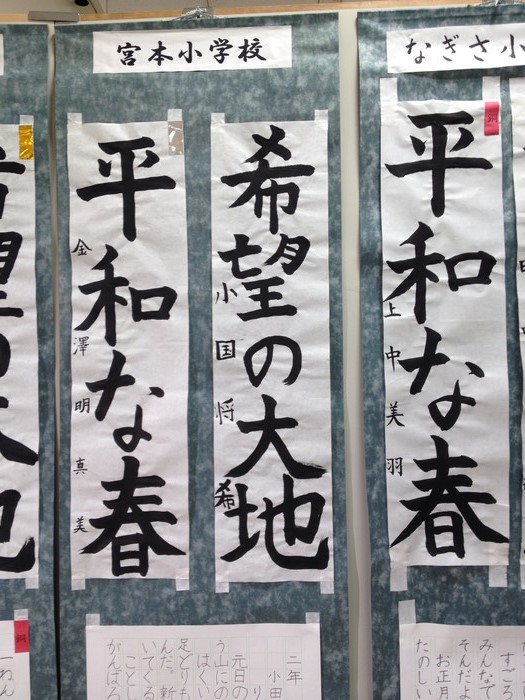 なぎさ小
平和な春
上中美羽
宮本小学校
希望の大地
小国将希
平和な春
金澤明真美
望の大地
すごろ
みんな
そんだよ
お正月
たのしい
二年
小田
元日の
う山にの
はくい
足どりも
んだ。新
いてくる
ことし
がんばろ
一ねん